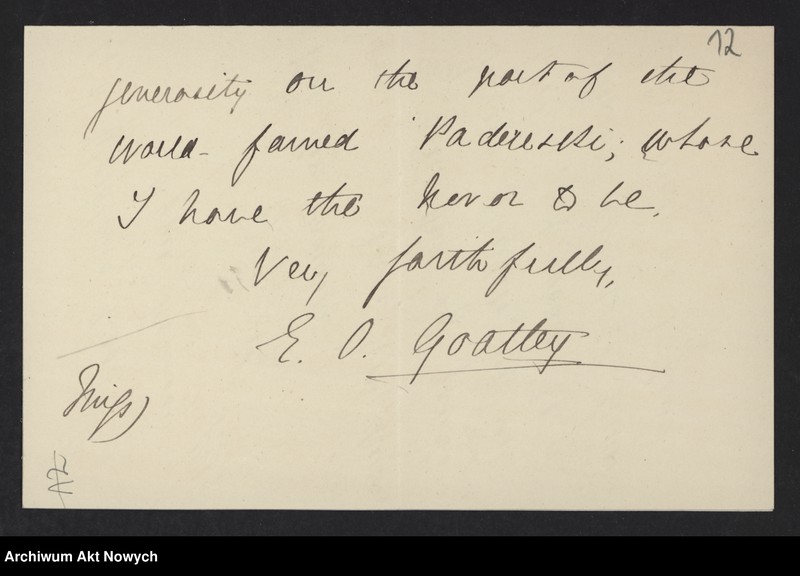 12
generosity on the part of the
world-famed Paderewski; whose
I have the honor to be.
Very faithfully,
E. O. Goatley
(Miss)
12
Archiwum Akt Nowych